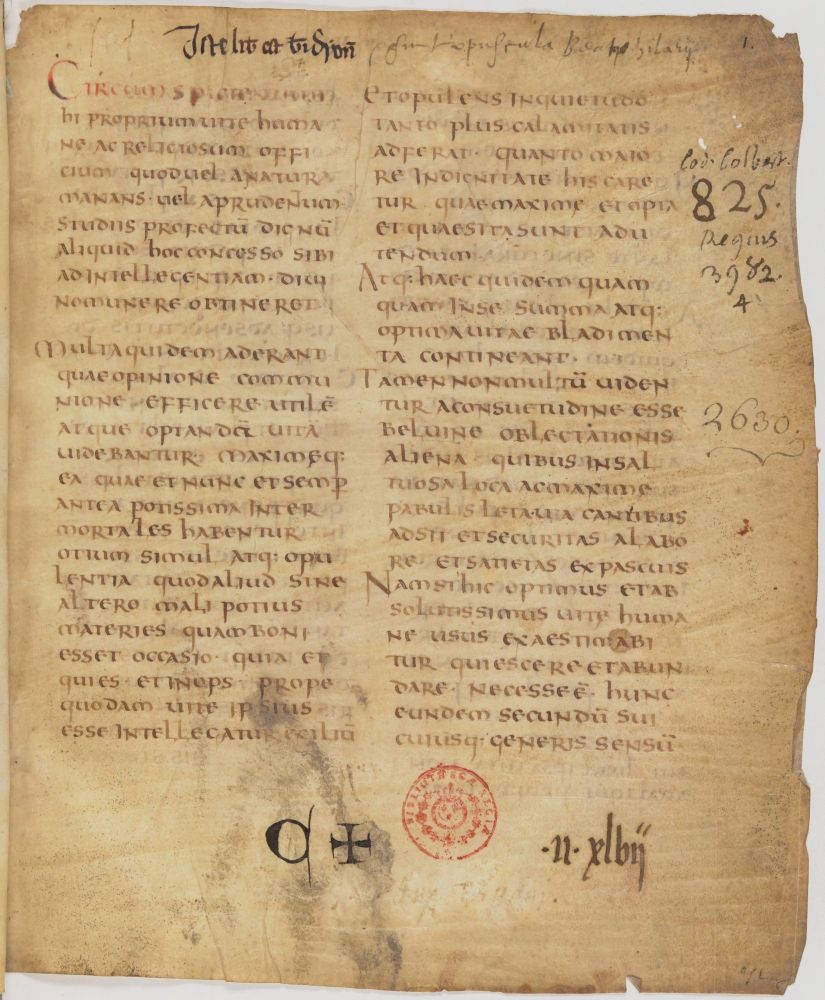 Iste lib̄ est
sunt opuscula Beati hilarij
1.
CIRCUMSPICIENTI
hi propriumuite huma
ne ac religiosum offi
cium quoduel anatura
manans· uel aprudentium·
studiis profectū dignū
aliquid hoc concesso sibi
adintellegentiam· diui
nomunere obtineret
Multa quidem aderant
quae opinione commu
nione efficere utilē
atque optandā uitā
uidebantur· maximeq:
ea quae et nunc et semp̄
antea potissima inter
mortales habentur
otium simul atq: opu
lentia quodaliud sine
altero mali potius
materies quamboni
esset occasio· quia et
quies· et inops· prope
quodam uite ipsius
esse intellegatur exiliū
Et opulens inquietudo
tanto plus calamitatis
adferat· quanto maio
re indignitate his care
tur quae maxime et opta
et quaesita sunt adu
tendum
Atq: haec quidem quam
quam inse summa atq:
optima uitae bladimen
ta contineant·
Tamen nonmultū uiden
tur aconsuetudine esse
beluine oblectationis
aliena quibus insal
tuosa loca acmaxime
pabulis leta
adsit et securitas alabo
re· et satietas expascuis
Nam si hic optimus et ab
solutissimus uite huma
ne usus exaestimabi
tur quiescere et abun
dare· necesse ē· hunc
eundem secundū sui
cuiusq: generis sensū·
Cod. Colbert.
825.
Regius
3982.
4
2630.
C +
BIBLIOTHECAE REGIAE
·II· xlvij